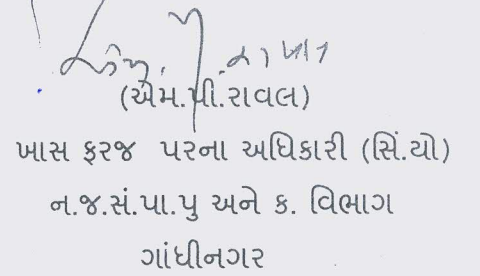 (એમ.પી.રાવલ)
ખાસ ફરજ પરના અધિકારી (સિં.યો)
ન.જ.સં.પા.પુ અને ક. વિભાગ
ગાંધીનગર